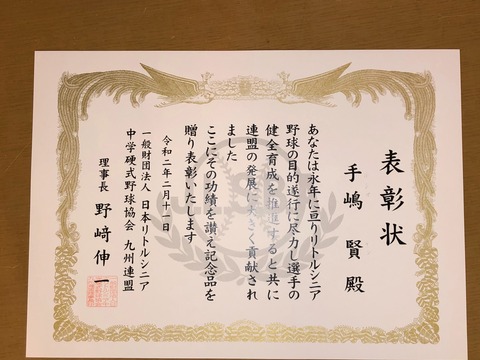 表彰状
手嶋 賢 殿
あなたは永年に亘りリトルシニア
野球の目的遂行に尽力し選手の
健全育成を推進すると共に
連盟の発展に大きく貢献され
ました
ここにその功績を讃え記念品を
贈り表彰いたします
令和二年二月十一日
一般財団法人 日本リトルシニア
中学硬式野球協会 九州連盟
理事長 野﨑伸一